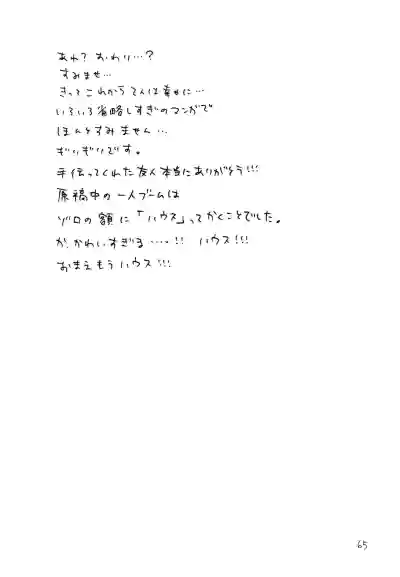 あれ? おわり…?
すみませ…
きっとこれから2人は幸せに…
いろいろ省略しすぎのマンガで
ほんとすみません…
ぎりぎりです。
手伝ってくれた友人本当にありがとう!!!
原稿中の一人ブームは
ゾロの額に「ハウス」ってかくことでした。
が、かわいすぎる……!! ハウス!!!
おまえもうハウス!!!
65